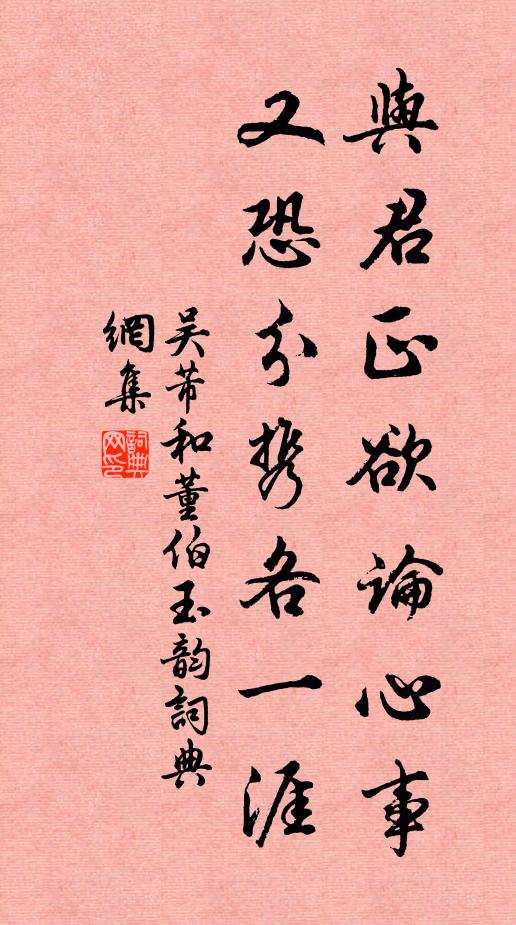 與君正欲論心事
又恐分携各一涯
吴芾和董伯玉韵詞典
網集
詞典
网印